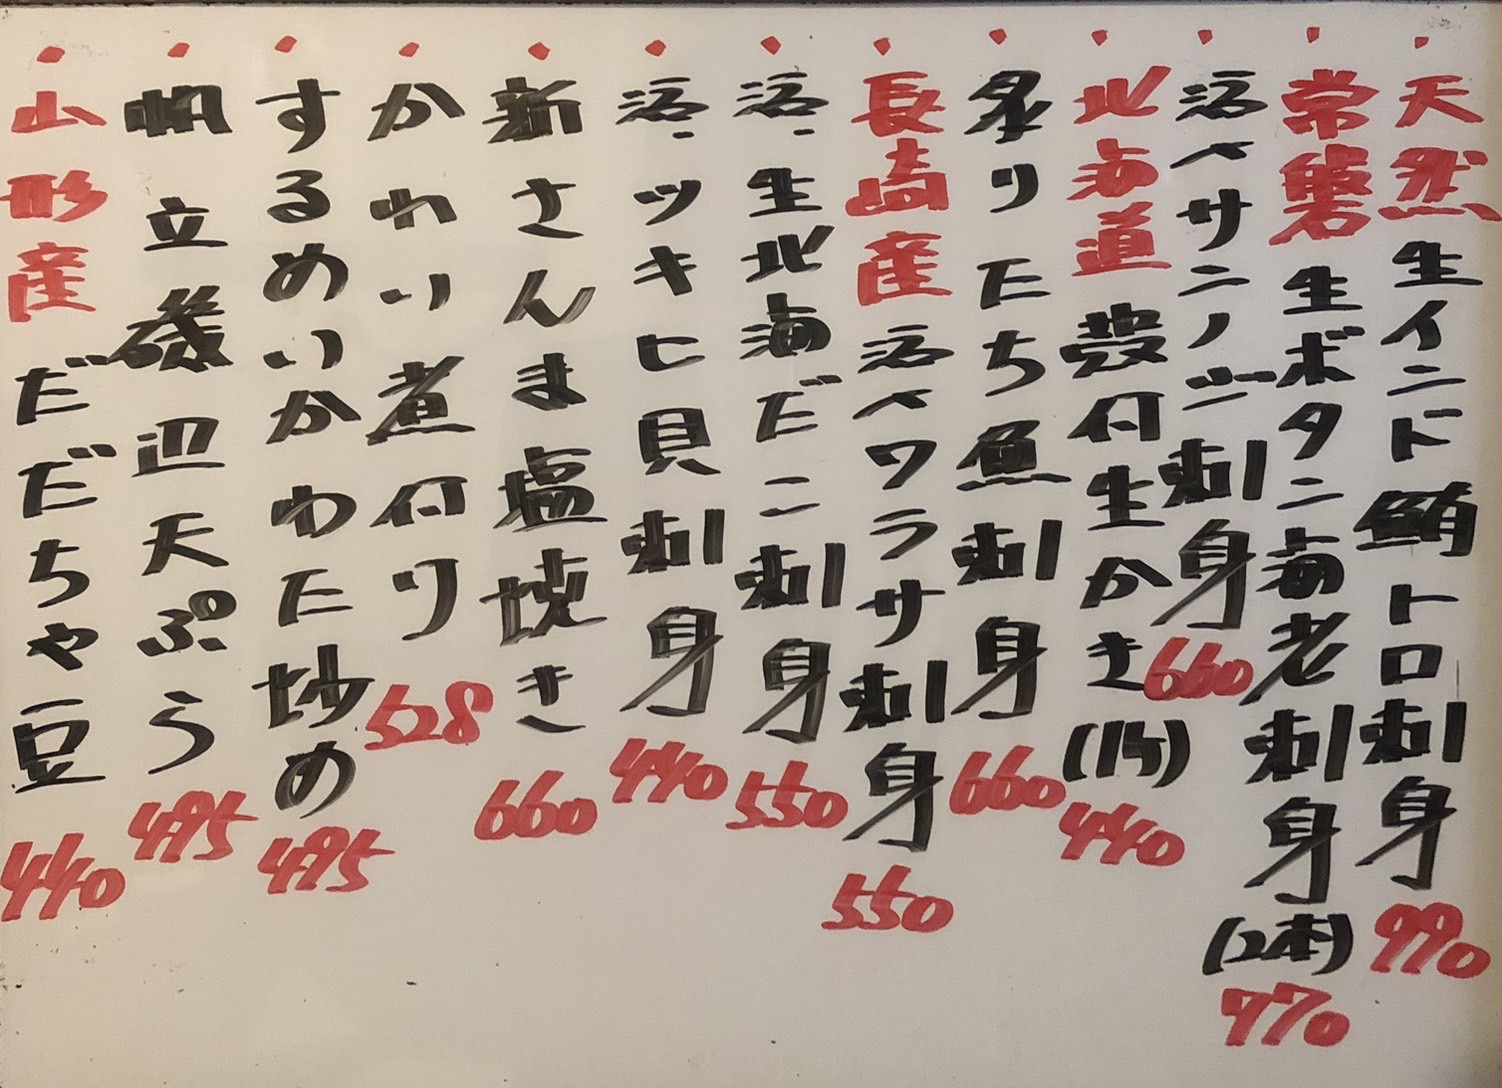 天然生インド鮪トロ刺身 990
常磐生ボタン海老刺身(2本) 770
活〆サンノジ刺身 660
北海道殻付生かき(1ケ) 440
炙りたち魚刺身 660
長崎産活〆ワラサ刺身 550
活、生北海だこ刺身 550
活、ツキヒ貝刺身 440
新さんま塩焼き 660
かれい煮付け 528
するめいかわた炒め 495
帆立磯辺天ぷら 495
山形産だだちゃ豆 440